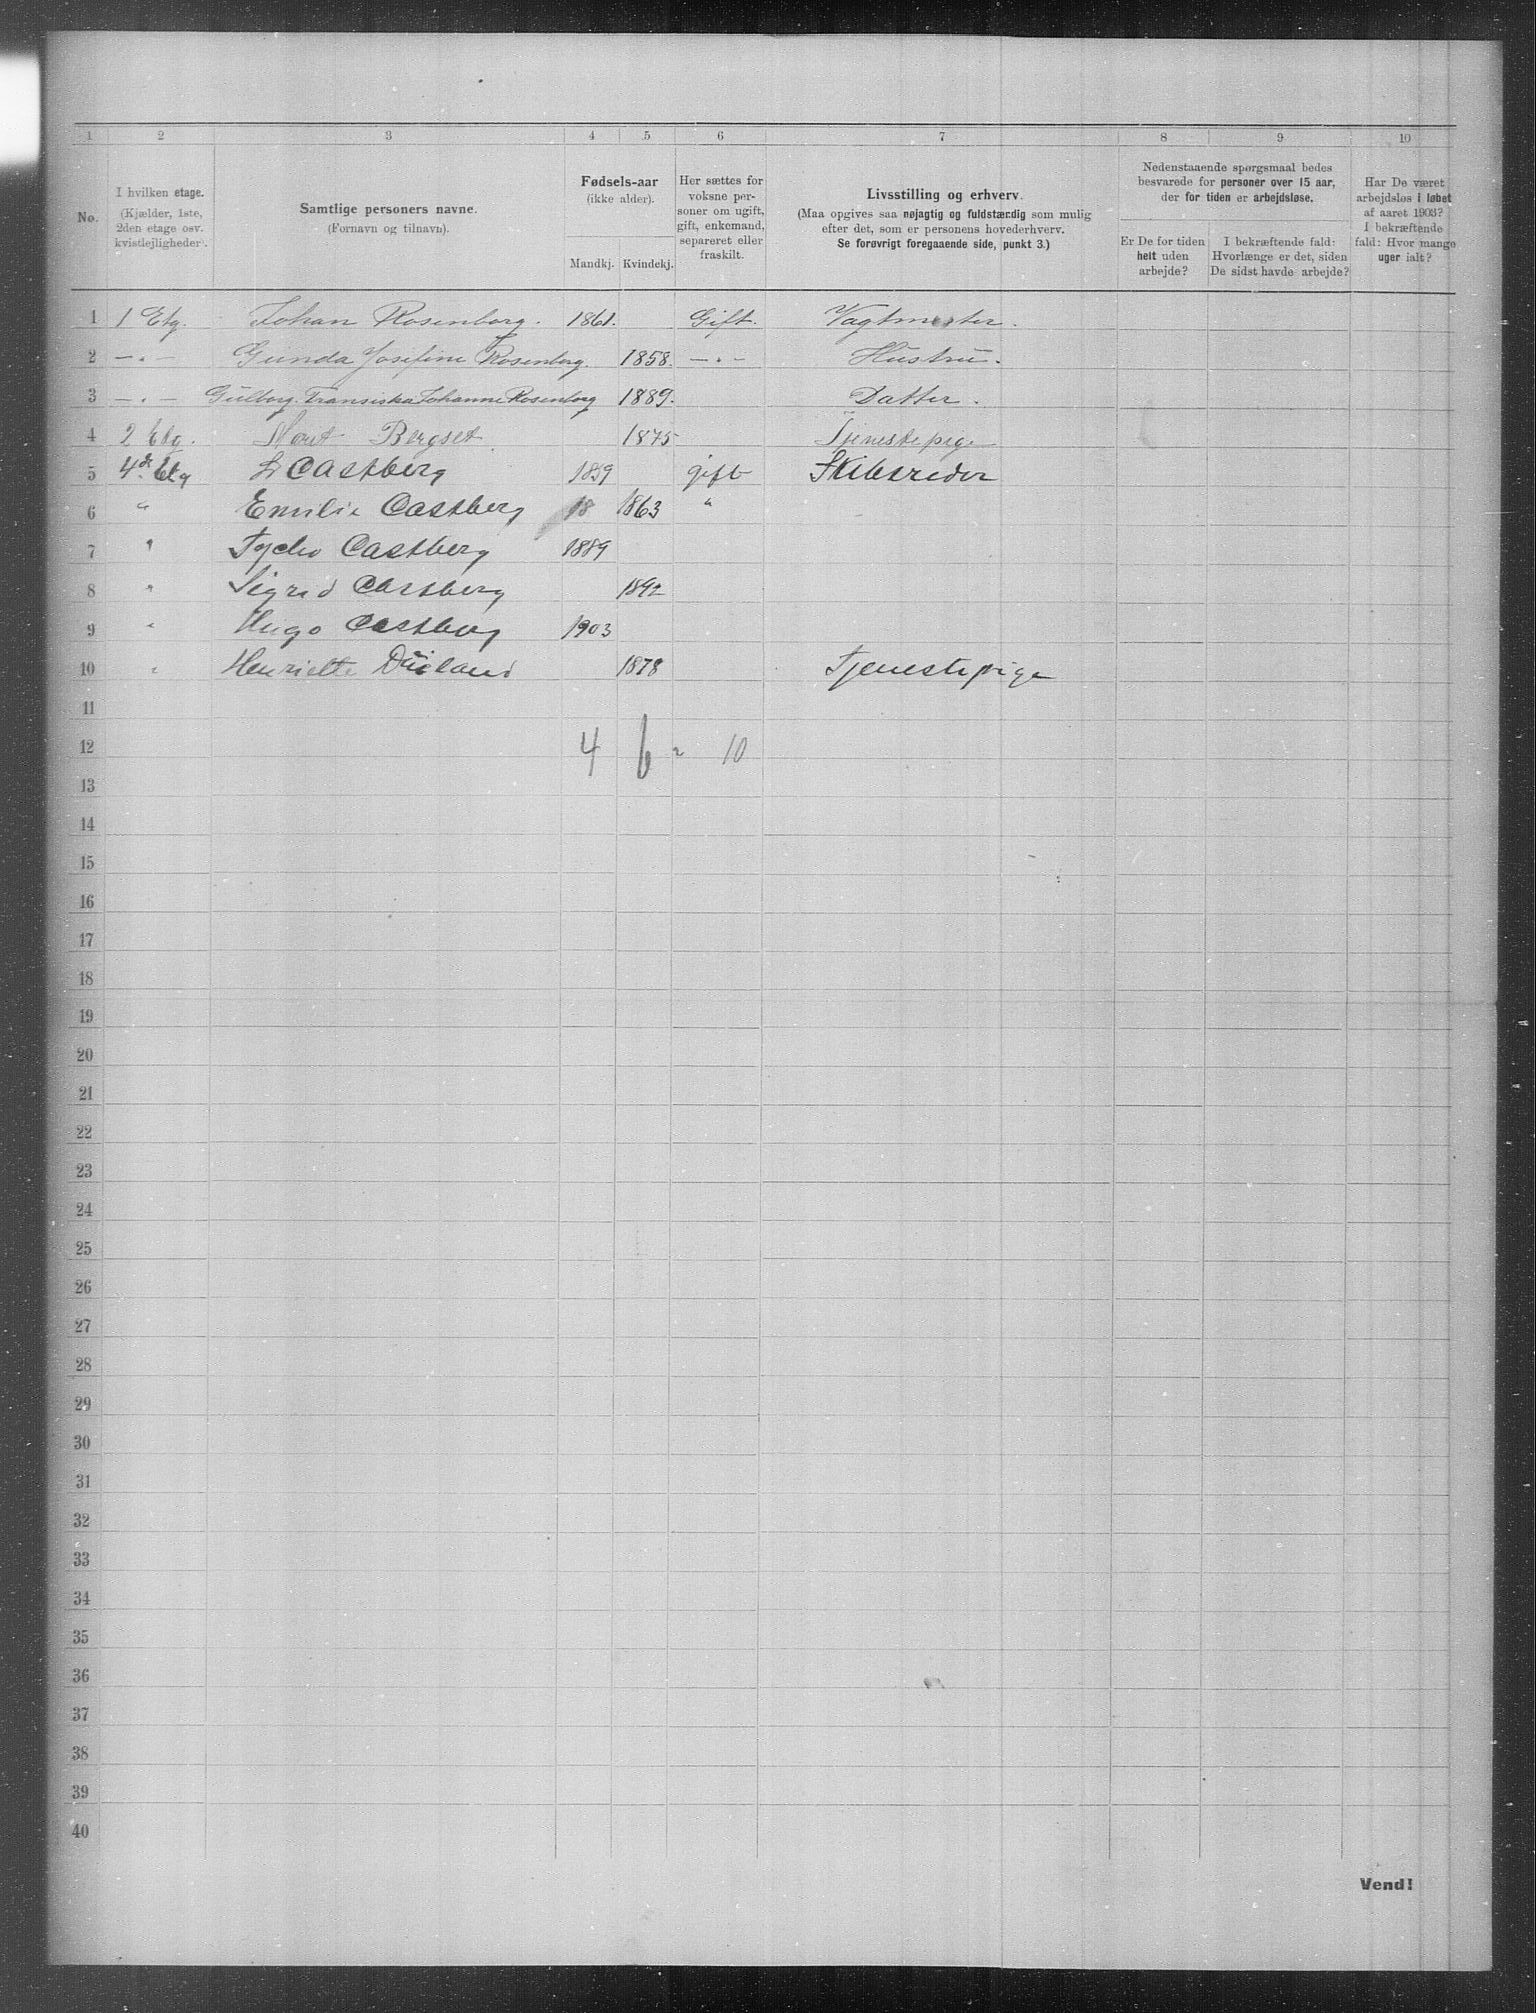 1 2 3 4 5 6 7 8 9 10
No.
I hvilken etage.
(Kjælder, 1ste,
2den etage osv.
kvistlejligheder).
Samtlige personers navne.
(Fornavn og tilnavn).
Fødsels-aar
(ikke alder).
Mandkj. Kvindekj.
Her sættes for
voksne per-
soner om ugift,
gift, enkemand,
separeret eller
fraskilt.
Livsstilling og erhverv.
(Maa opgives saa nøjagtig og fuldstændig som mulig
efter det, som er personens hovederhverv.
Se forøvrigt foregaaende side, punkt 3.)
Nedenstaaende spørgsmaal bedes
besvarede for personer over 15 aar,
der for tiden er arbejdsløse.
Er De for tiden
helt uden
arbejde?
I bekræftende fald:
Hvorlænge er det, siden
De sidst havde arbejde?
Har De været
arbejdsløs i løbet
af aaret 1903?
I bekræftende
fald: Hvor mange
uger ialt?
1 1 Etg. Johan Rosenborg. 1861. Gift. Vagtmester.
2 -„- Gunda Josefine Rosenborg. 1858. -„- Hustru.
3 -„- Gulborg. Fransiska Johanne Rosenborg 1889. Datter.
4 2 Etg. Marit Bergset 1875 Tjenestepige
5 4de Etg Castberg 1859 gift Skibsreder
6 " Emilie Castberg 18 1863 "
7 " Tycho Castberg 1889
8 " Sigrid Castberg 1892
9 " Hugo Castberg 1903
10 " Henriette 1878 Tjenestepige
11
12 4 6 = 10
13
14
15
16
17
18
19
20
21
22
23
24
25
26
27
28
29
30
31
32
33
34
35
36
37
38
39
40
Vend!